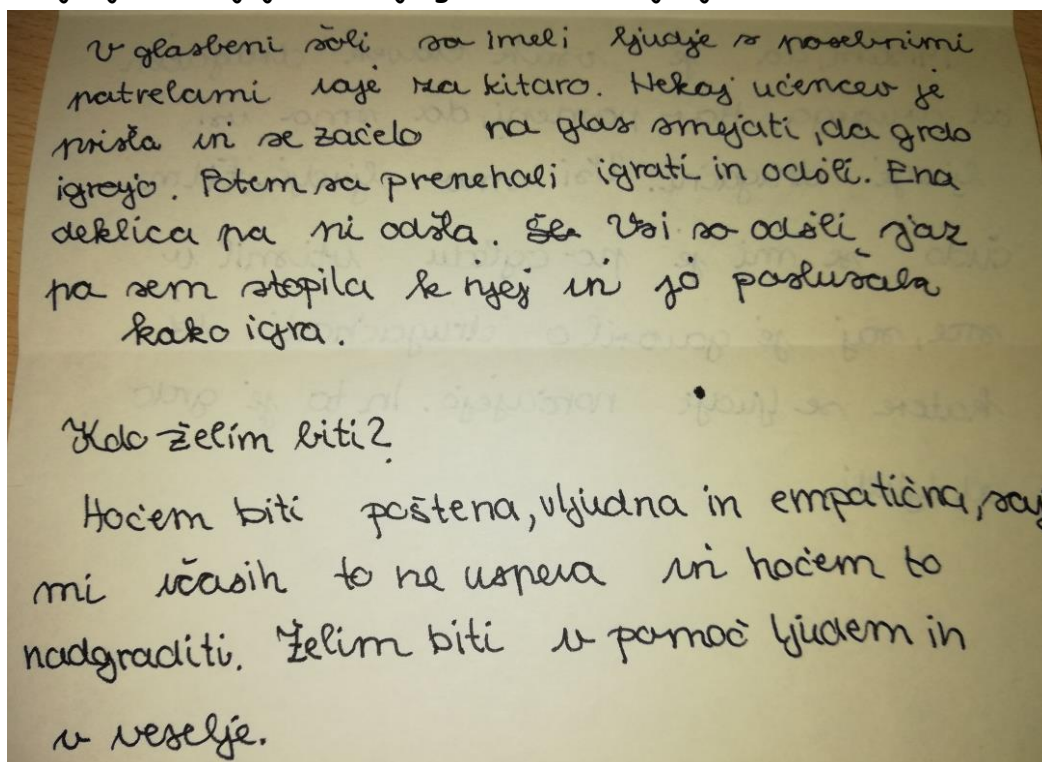 V glasbeni šoli so imeli ljudje s posebnimi
potrebami vaje za kitaro. Nekaj učencev je
prišlo in se začelo na glas smejati, da grdo
igrajo. Potem so prenehali igrati in odšli. Ena
deklica pa ni odšla. Vsi so odšli jaz
pa sem stopila k njej in jo poslušala
kako igra.
Kdo želim biti?
Hočem biti poštena, vljudna in empatična, saj
mi včasih to ne uspeva in hočem to
nadgraditi. Želim biti v pomoč ljudem in
v veselje.